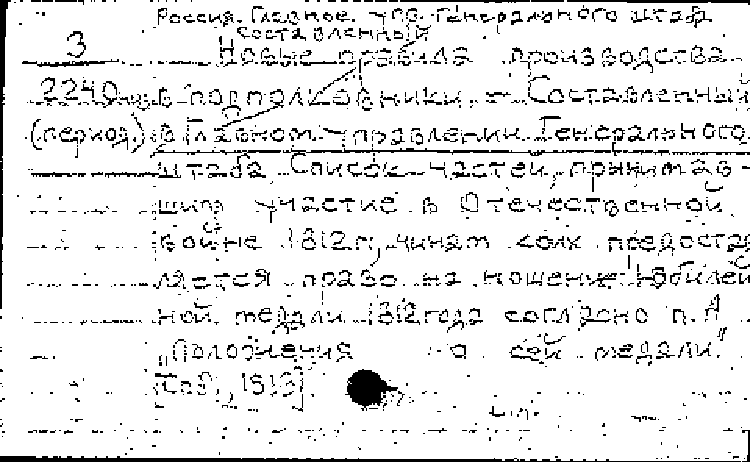 Россия. Главное упр. Генерального штаба
составленный
3 Новые правила производства
2240 в подполковники. – Составленный
(период.) в Главном управлении Генерального
штаба Список частей, принимав-
ших участие в Отечественной
войне 1812 г., чинам коих предостав
ляется право на ношение юбилей
ной медали 1812 года согласно п. А
„Положения о сей медали."
[Спб., 1913]